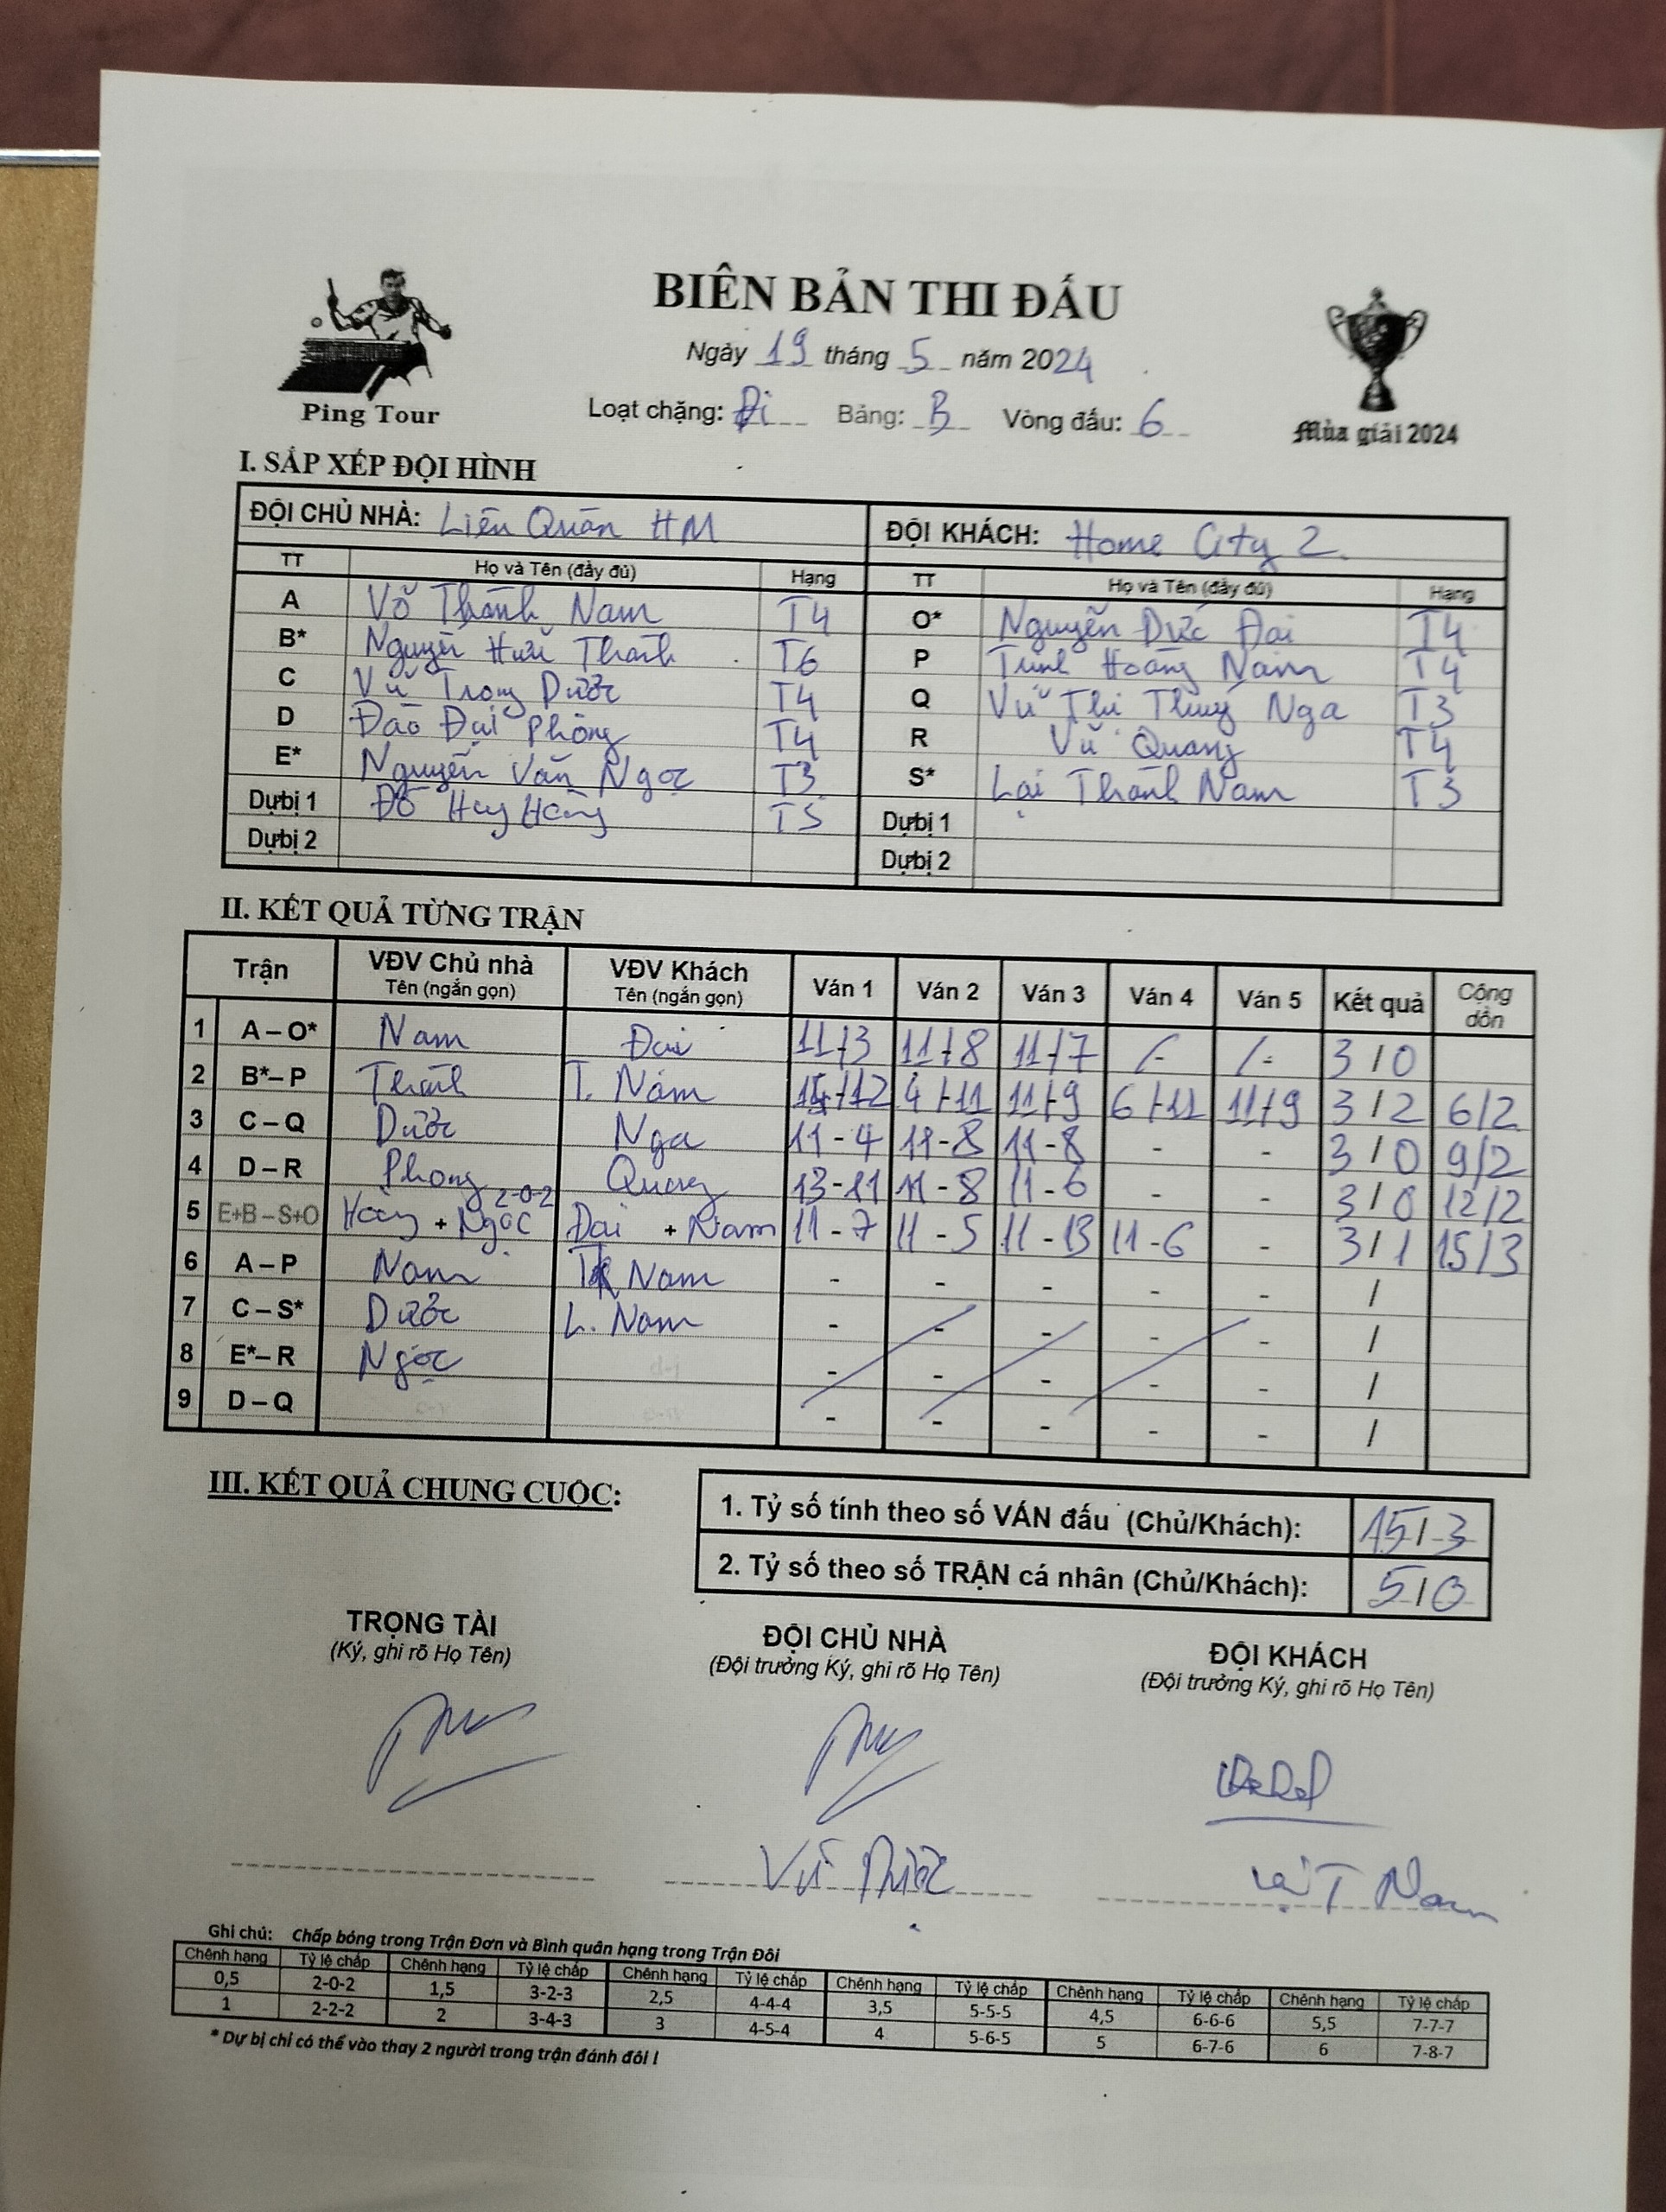 BIÊN BẢN THI ĐẤU
Ngày 19 tháng 5 năm 2024
Loạt chặng: Đi Bảng: B Vòng đấu: 6
Ping Tour
Mùa giải 2024
I. SẮP XẾP ĐỘI HÌNH
ĐỘI CHỦ NHÀ: Liên Quân HM ĐỘI KHÁCH: Home City 2
TT Họ và Tên (đầy đủ) Hạng TT Họ và Tên (đầy đủ) Hạng
A Võ Thành Nam T4 O* Nguyễn Đức Đại T4
B* Nguyễn Hữu Thành T6 P Trịnh Hoàng Nam T4
C Vũ Trọng Dước T4 Q Vũ Thị Thuý Nga T3
D Đào Đại Phong T4 R Vũ Quang T4
E* Nguyễn Văn Ngọc T3 S* Lại Thành Nam T3
Dự bị 1 Đỗ Huy Hoàng T5 Dự bị 1
Dự bị 2 Dự bị 2
II. KẾT QUẢ TỪNG TRẬN
Trận VĐV Chủ nhà VĐV Khách Ván 1 Ván 2 Ván 3 Ván 4 Ván 5 Kết quả Cộng dồn
Tên (ngắn gọn) Tên (ngắn gọn)
1 A – O* Nam Đại 11-3 11-8 11-7 - - 3/0
2 B* – P Thành T. Nam 14-12 4-11 11-9 6-11 11-9 3/2 6/2
3 C – Q Dước Nga 11-4 11-8 11-8 - - 3/0 9/2
4 D – R Phong Quang 13-11 11-8 11-6 - - 3/0 12/2
2-0-2
5 E+B – S+O Hoàng + Ngọc Đại + Nam 11-7 11-5 11-13 11-6 - 3/1 15/3
6 A – P Nam Nam - - - - - /
7 C – S* Dước L. Nam - - - - - /
8 E* – R Ngọc - - - - - /
9 D – Q - - - - - /
III. KẾT QUẢ CHUNG CUỘC:
1. Tỷ số tính theo số VÁN đấu (Chủ/Khách): 15/3
2. Tỷ số theo số TRẬN cá nhân (Chủ/Khách): 5/0
TRỌNG TÀI ĐỘI CHỦ NHÀ ĐỘI KHÁCH
(Ký, ghi rõ Họ Tên) (Đội trưởng Ký, ghi rõ Họ Tên) (Đội trưởng Ký, ghi rõ Họ Tên)
Vũ Dước Lại T Nam
Ghi chú: Chấp bóng trong Trận Đơn và Bình quân hạng trong Trận Đôi
Chênh hạng Tỷ lệ chấp Chênh hạng Tỷ lệ chấp Chênh hạng Tỷ lệ chấp Chênh hạng Tỷ lệ chấp Chênh hạng Tỷ lệ chấp Chênh hạng Tỷ lệ chấp
0,5 2-0-2 1,5 3-2-3 2,5 4-4-4 3,5 5-5-5 4,5 6-6-6 5,5 7-7-7
1 2-2-2 2 3-4-3 3 4-5-4 4 5-6-5 5 6-7-6 6 7-8-7
* Dự bị chỉ có thể vào thay 2 người trong trận đánh đôi !